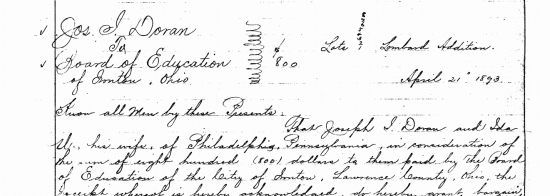 Jos. I. Doran
To
Board of Education
of Ironton, Ohio
$ 800
Lots Lombard Addition.
April 21" 1893.
Know all Men by these Presents:
That Joseph I. Doran and Ida
his wife, of Philadelphia, Pennsylvania, in consideration of
the sum of eight hundred (800) dollars to them paid by the Board
of Education of the City of Ironton, Lawrence County, Ohio, the
receipt whereof is hereby acknowledged, do hereby grant, bargain,